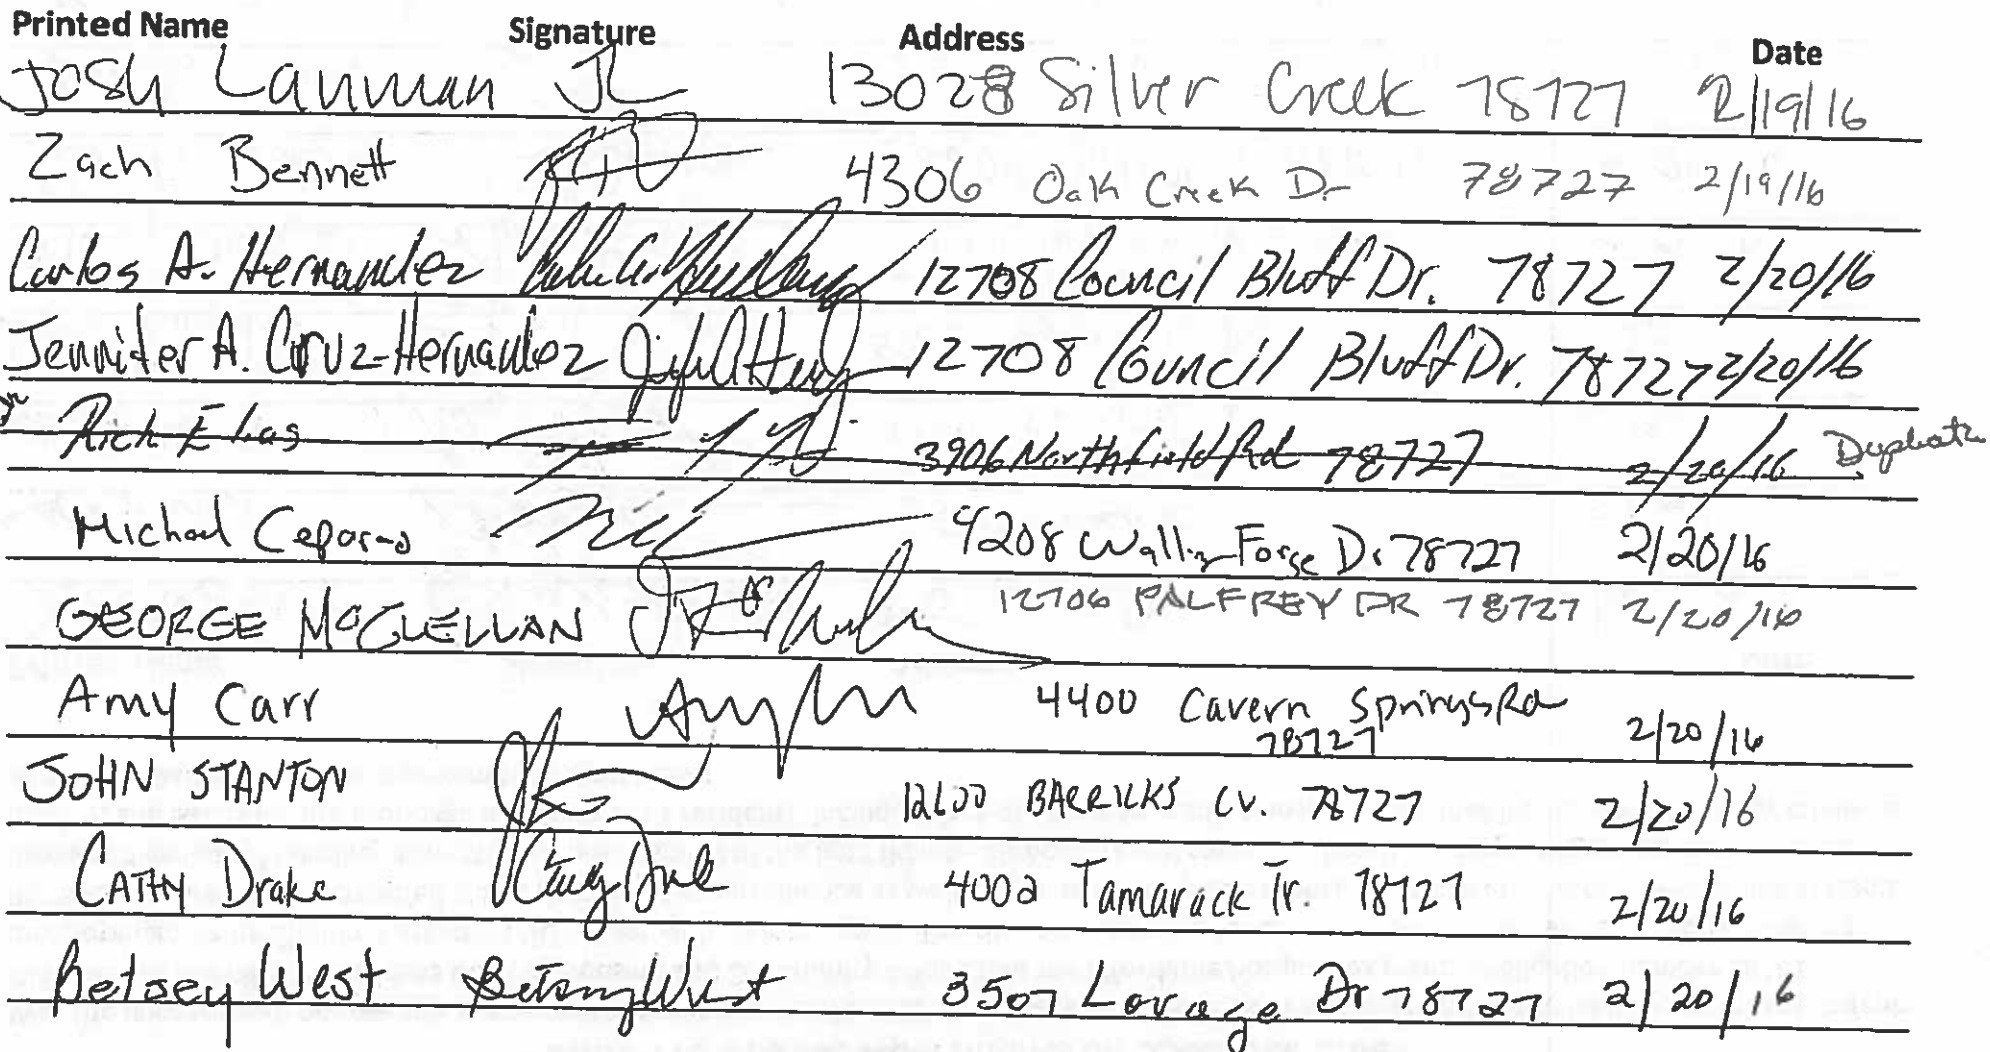 Printed Name Signature Address Date
Josh Lanman JL 13028 Silver Creek 78727 2/19/16
Zach Bennett 4306 Oak Creek Dr 78727 2/19/16
Carlos A. Hernandez 12708 Council Bluff Dr. 78727 2/20/16
Jennifer A. Cruz-Hernandez 12708 Council Bluff Dr. 78727 2/20/16
Rich Elias 3906 Northfield Rd 78727 2/20/16 Duplicate
Michael 4208 Forge Dr 78727 2/20/16
GEORGE MCCLELLAN 12706 PALFREY DR 78727 2/20/16
Amy Carr 4400 Cavern Springs Rd 2/20/16
78727
JOHN STANTON 12600 CV. 78727 2/20/16
CATHY Drake 4002 Tamarack Tr. 78727 2/20/16
Betsey West Betsey West 3501 Lovage Dr 78727 2/20/16